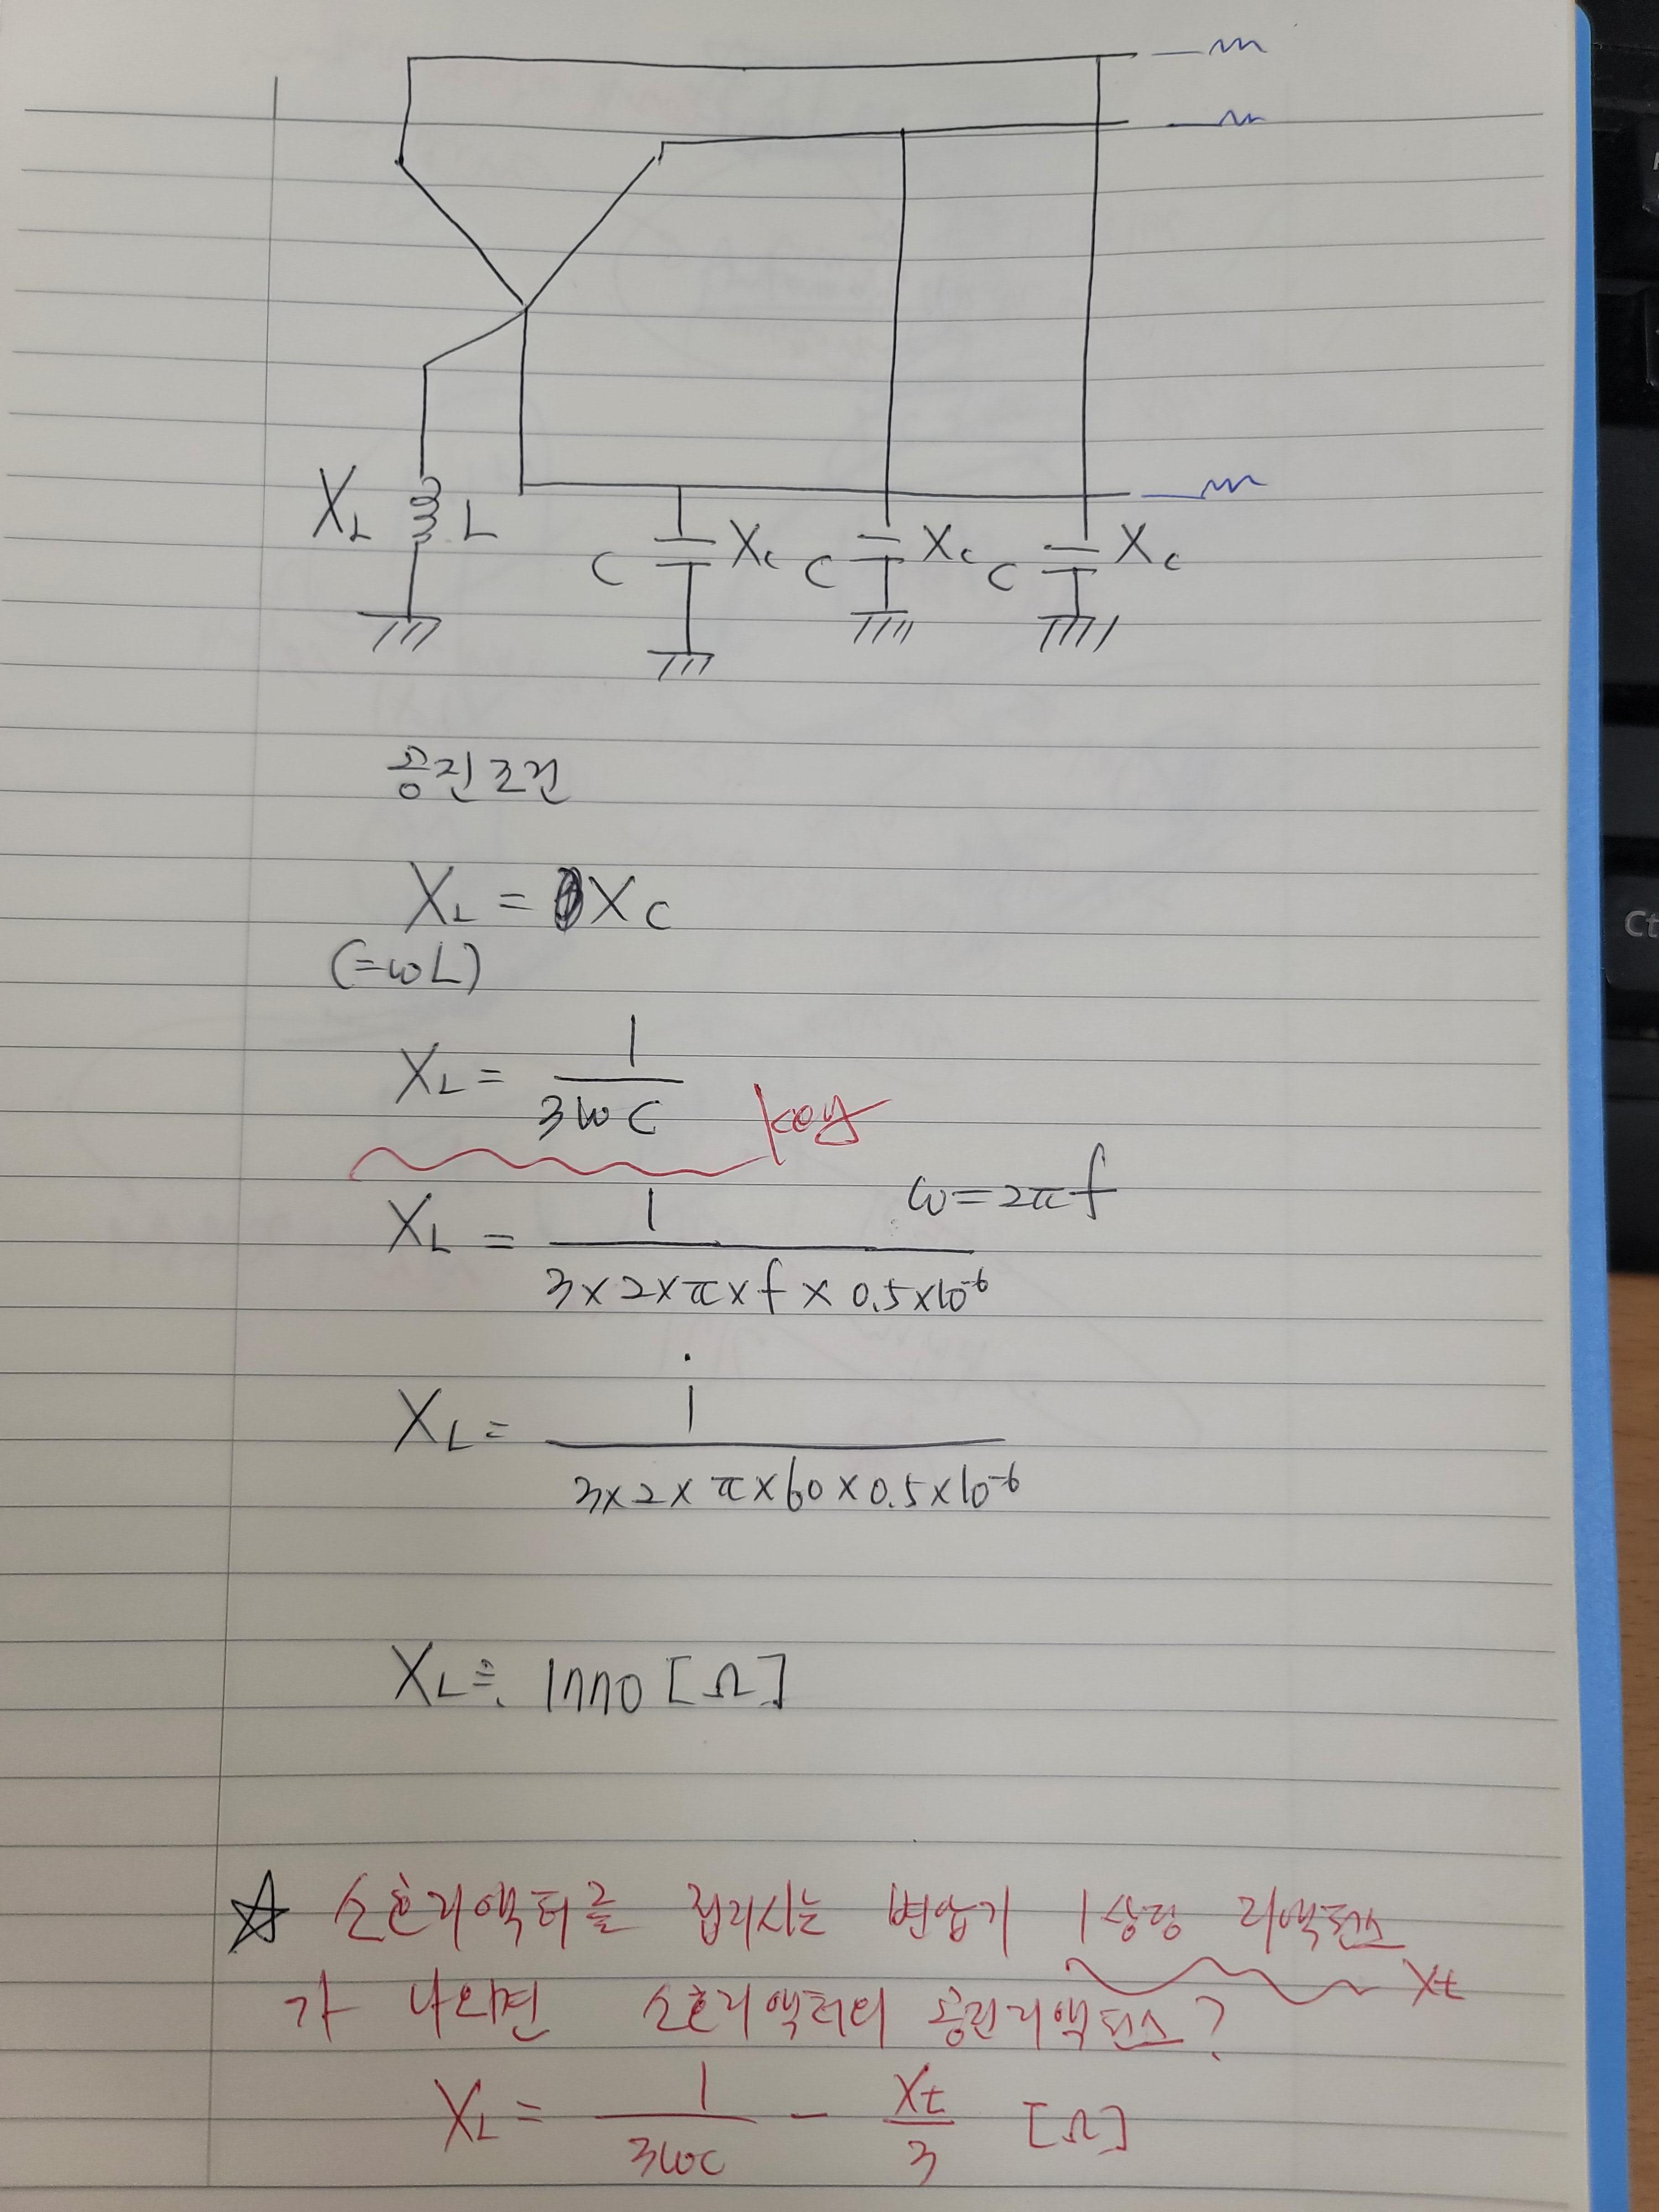 X_L L C X_C C X_C C X_C
공진조건
X_L = X_C
(=ωL)
X_L = 1/3ωC key
X_L = 1/3×2×π×f×0.5×10^-6 ω=2πf
X_L = 1/3×2×π×60×0.5×10^-6
X_L ≒ 1770 [Ω]
☆ 소호리액터를 접지시는 변압기 1상당 리액턴스
가 나오면 소호리액터의 공진리액턴스? Xt
X_L = 1/3ωC - Xt/3 [Ω]
Ct